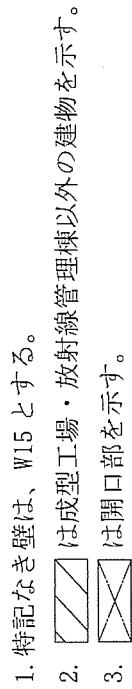 1. 特記なき壁は、W15 とする。
2. は成型工場・放射線管理棟以外の建物を示す。
3. は開口部を示す。